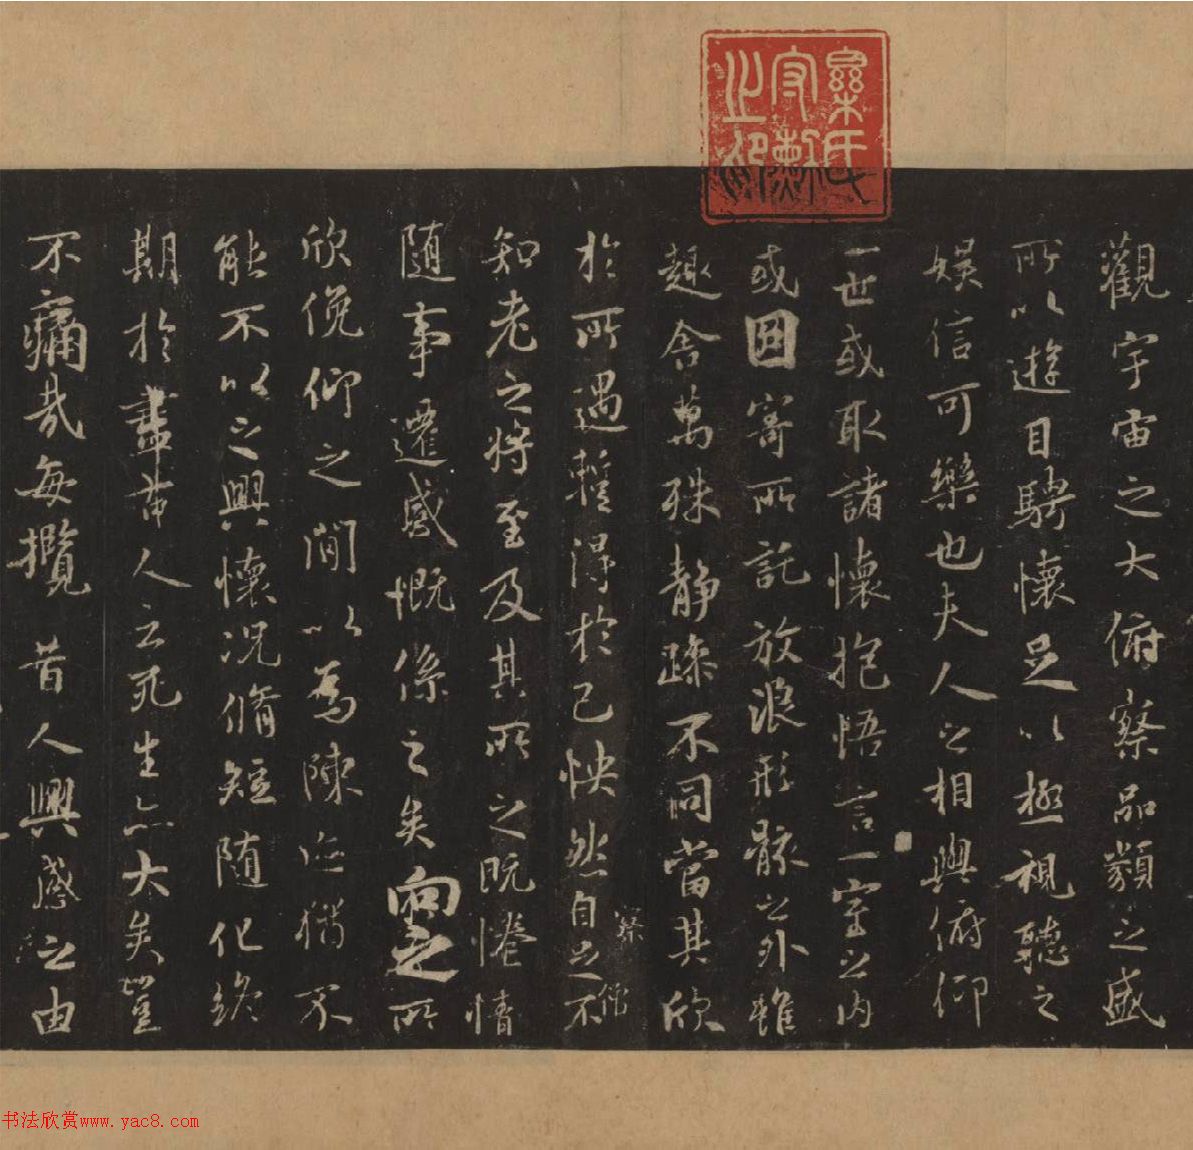 觀宇宙之大俯察品類之盛
所以遊目騁懷足以極視聽之
娛信可樂也夫人之相與俯仰
一世或取諸懷抱悟言一室之內
或因寄所託放浪形骸之外雖
趣舍萬殊靜躁不同當其欣
於所遇蹔得於己怏然自足不
察
僧
知老之將至及其所之既惓情
隨事遷感慨係之矣向之所
欣俛仰之間以為陳迹猶不
能不以之興懷況脩短隨化終
期於盡古人云死生亦大矣豈
不痛哉每攬昔人興感之由
书法欣赏www.yac8.com